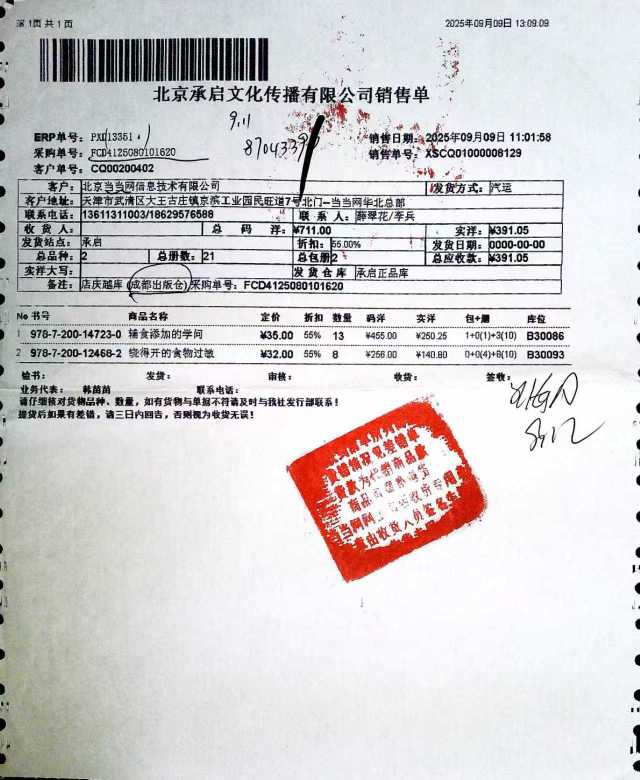 第1页 共1页 2025年09月09日 13:09:09
北京承启文化传播有限公司销售单
9.11
ERP单号: PXD13351 销售日期: 2025年09月09日 11:01:58
采购单号: FCD4125080101620 销售单号: XSCQ01000008129
客户单号: CQ00200402
客户: 北京当当网信息技术有限公司 发货方式: 汽运
客户地址: 天津市武清区大王古庄镇京滨工业园民旺道7号北门--当当网华北总部
联系电话: 13611311003/18629576588 联系人: 薛翠花/李兵
收货人: 总码洋: ¥711.00 实洋: ¥391.05
发货站点: 承启 折扣: 55.00% 发货日期: 0000-00-00
总品种: 2 总册数: 21 总包册 2 总应收款: ¥391.05
实洋大写: 发货仓库 承启正品库
备注: 店庆越库 (成都出版仓) 采购单号: FCD4125080101620
No 书号 商品名称 定价 折扣 数量 码洋 实洋 包+册 库位
1 978-7-200-14723-0 辅食添加的学问 ¥35.00 55% 13 ¥455.00 ¥250.25 1+0(1)+3(10) B30086
2 978-7-200-12468-2 绕得开的食物过敏 ¥32.00 55% 8 ¥256.00 ¥140.80 0+0(4)+8(10) B30093
验书: 发货: 审核: 收货: 签收:
业务代表: 韩苗苗 联系电话:
请仔细核对货物品种、数量，如有货物与单据不符请及时与我社发行部联系！
提货后如果有差错，请三日内回告，否则视为收货无误！